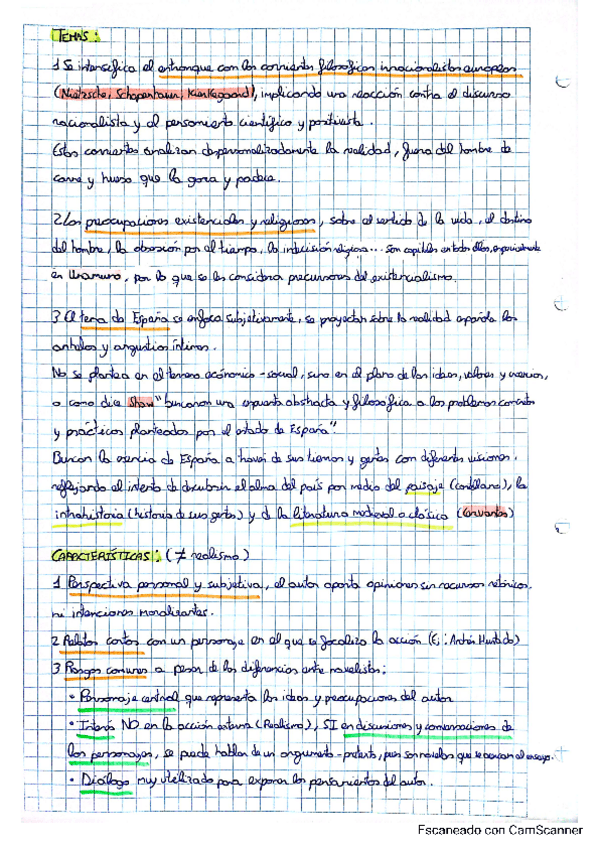 TEMAS:
1 Se intensifica el entronque con las corrientes filosóficas irracionalistas europeas
(Nietzsche, Schopenhaun, Kierkegaard), implicando una reacción contra el discurso
racionalista y el pensamiento científico y positivista.
Estas corrientes analizan despersonalizadamente la realidad, fuera del hombre de
carne y hueso que la goza y padece.
2 Las preocupaciones existenciales y religiosas, sobre el sentido de la vida, el destino
del hombre, la obsesión por el tiempo, la indecisión religiosa... son captables en todos ellos, especialmente
en Unamuno, por lo que se les considera precursores del existencialismo.
3 El tema de España se enfoca subjetivamente, se proyectan sobre la realidad española los
anhelos y angustias íntimas.
No se plantea en el terreno económico-social, sino en el plano de las ideas, valores y creencias,
o como dice Shaw "buscaron una respuesta abstracta y filosófica a los problemas concretos
y prácticos planteados por el estado de España".
Buscan la esencia de España a través de sus tierras y gentes con diferentes visiones,
reflejando el intento de descubrir el alma del país por medio del paisaje (castellano), la
intrahistoria (historia de sus gentes) y de la literatura medieval o clásica (Cervantes)
CARACTERÍSTICAS: (≠ realismo)
1 Perspectiva personal y subjetiva, el autor aporta opiniones sin recursos retóricos
ni intenciones moralizantes.
2 Relatos cortos con un personaje en el que se focaliza la acción (Ej: Andrés Hurtado)
3 Rasgos comunes a pesar de las diferencias entre novelistas:
• Personaje central que representa las ideas y preocupaciones del autor
• Interés NO en la acción externa (Realismo), SI en discusiones y conversaciones de
los personajes, se puede hablar de un argumento-pretexto, pues son novelas que se acercan al ensayo.
• Diálogo muy utilizado para exponer los pensamientos del autor.
Escaneado con CamScanner